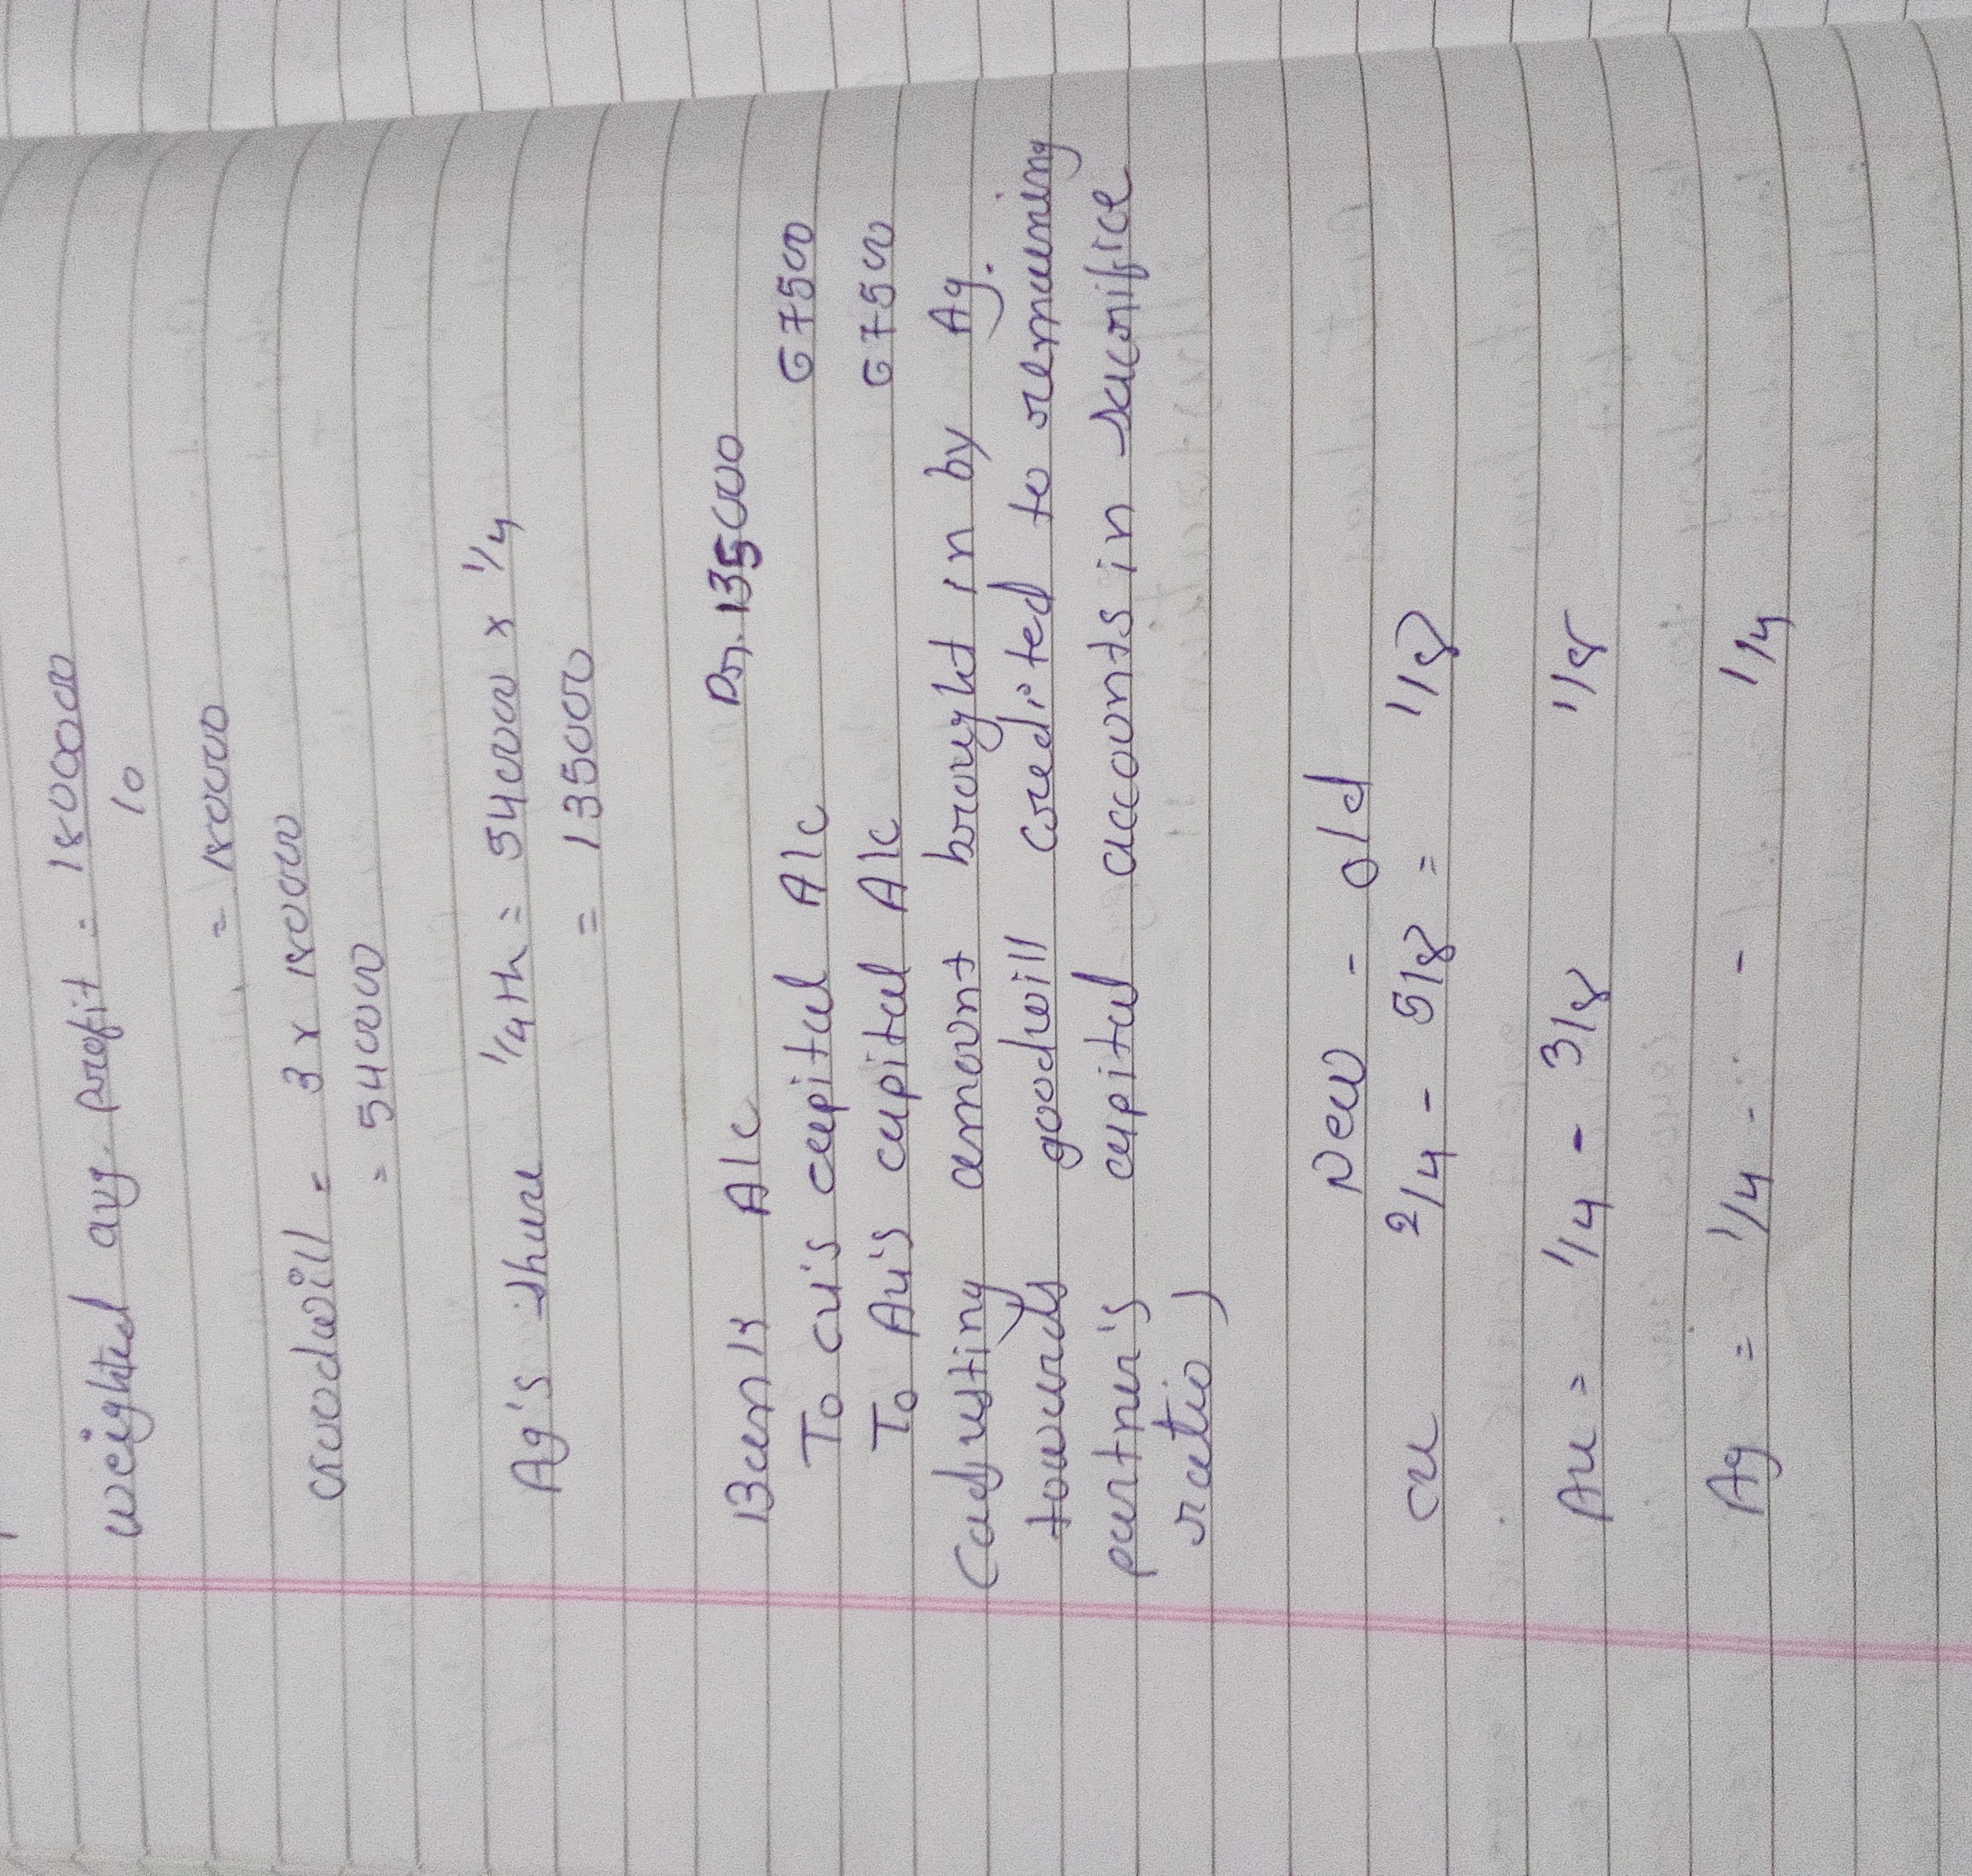 weighted avg. profit = 1800000
10
= 180000
Goodwill = 3 x 180000
= 540000
Ag's share 1/4th = 540000 x 1/4
= 135000
Bank A/c Dr. 135000
To Cu's capital A/c 67500
To Au's capital A/c 67500
(adjusting amount brought in by Ag.
towards goodwill credited to remaining
partner's capital accounts in sacrifice
ratio)
New - old
Cu 2/4 - 5/8 = 1/8
Au = 1/4 - 3/8 1/8
Ag = 1/4 - - 1/4